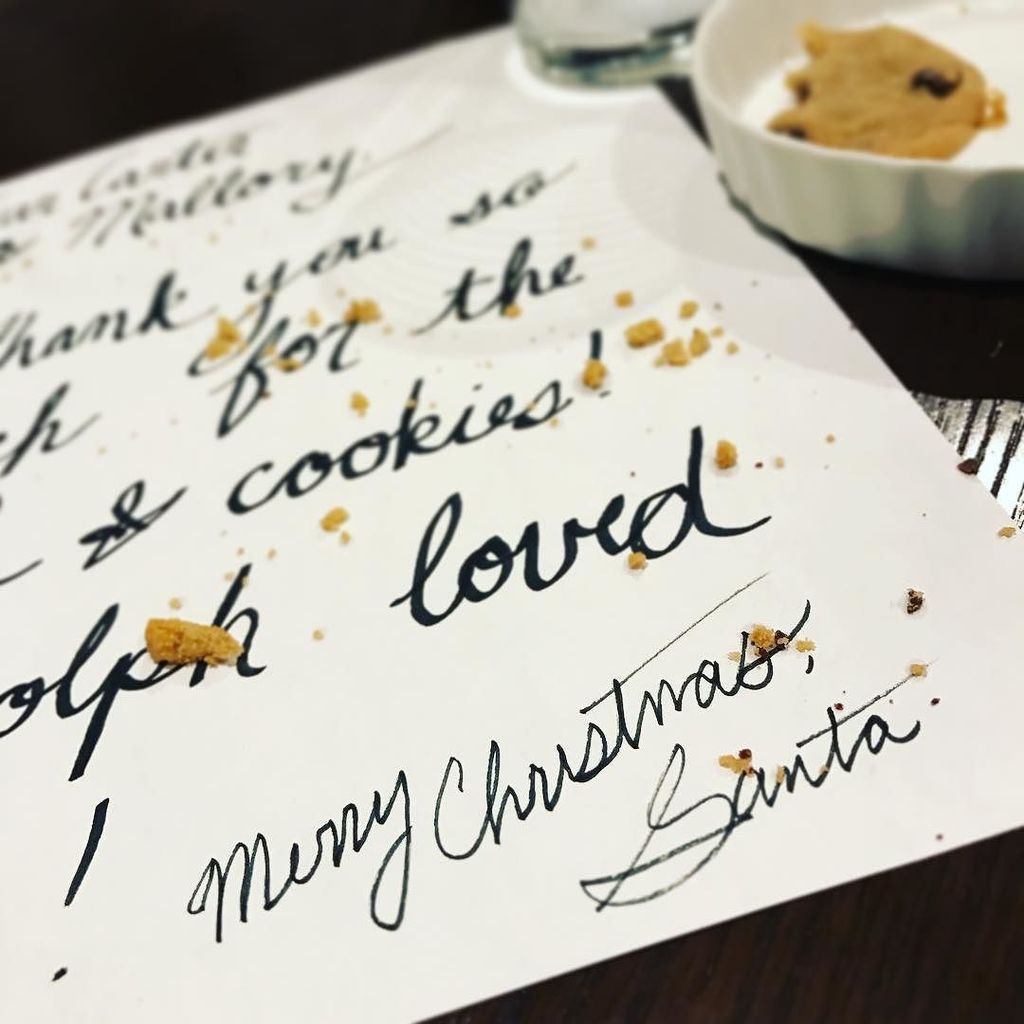 Carter
& Mallory,
Thank you so
ch for the
& cookies!
olph loved
!
Merry Christmas,
Santa